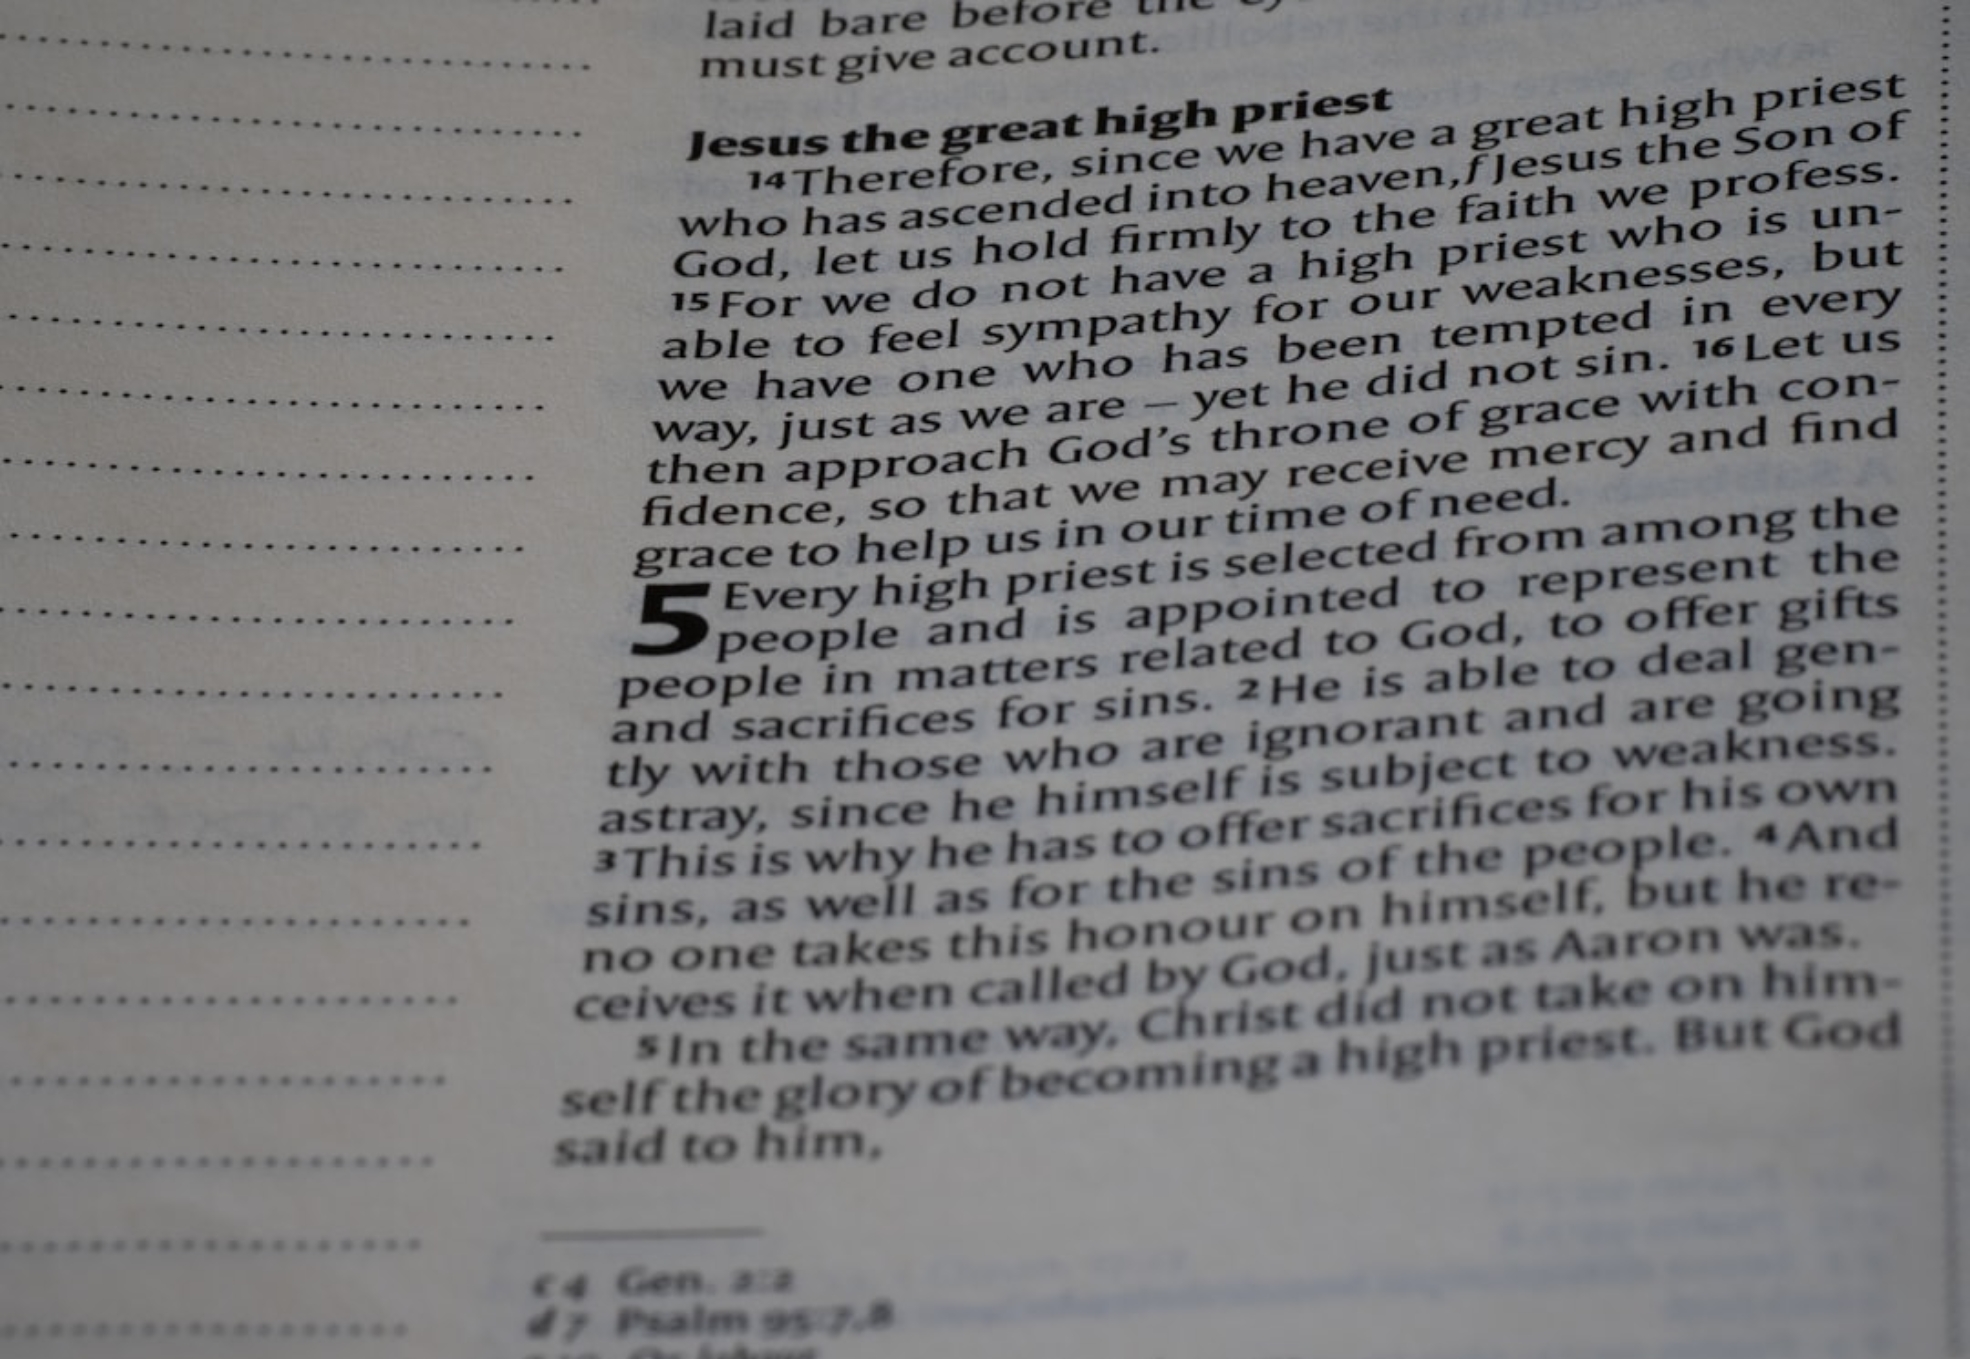 laid bare before the
must give account.
Jesus the great high priest
14 Therefore, since we have a great high priest
who has ascended into heaven,f Jesus the Son of
God, let us hold firmly to the faith we profess.
15 For we do not have a high priest who is un-
able to feel sympathy for our weaknesses, but
we have one who has been tempted in every
way, just as we are – yet he did not sin. 16 Let us
then approach God’s throne of grace with con-
fidence, so that we may receive mercy and find
grace to help us in our time of need.
5 Every high priest is selected from among the
people and is appointed to represent the
people in matters related to God, to offer gifts
and sacrifices for sins. 2 He is able to deal gen-
tly with those who are ignorant and are going
astray, since he himself is subject to weakness.
3 This is why he has to offer sacrifices for his own
sins, as well as for the sins of the people. 4 And
no one takes this honour on himself, but he re-
ceives it when called by God, just as Aaron was.
5 In the same way, Christ did not take on him-
self the glory of becoming a high priest. But God
said to him,
c 4 Gen. 2:2
d 7 Psalm 95:7,8